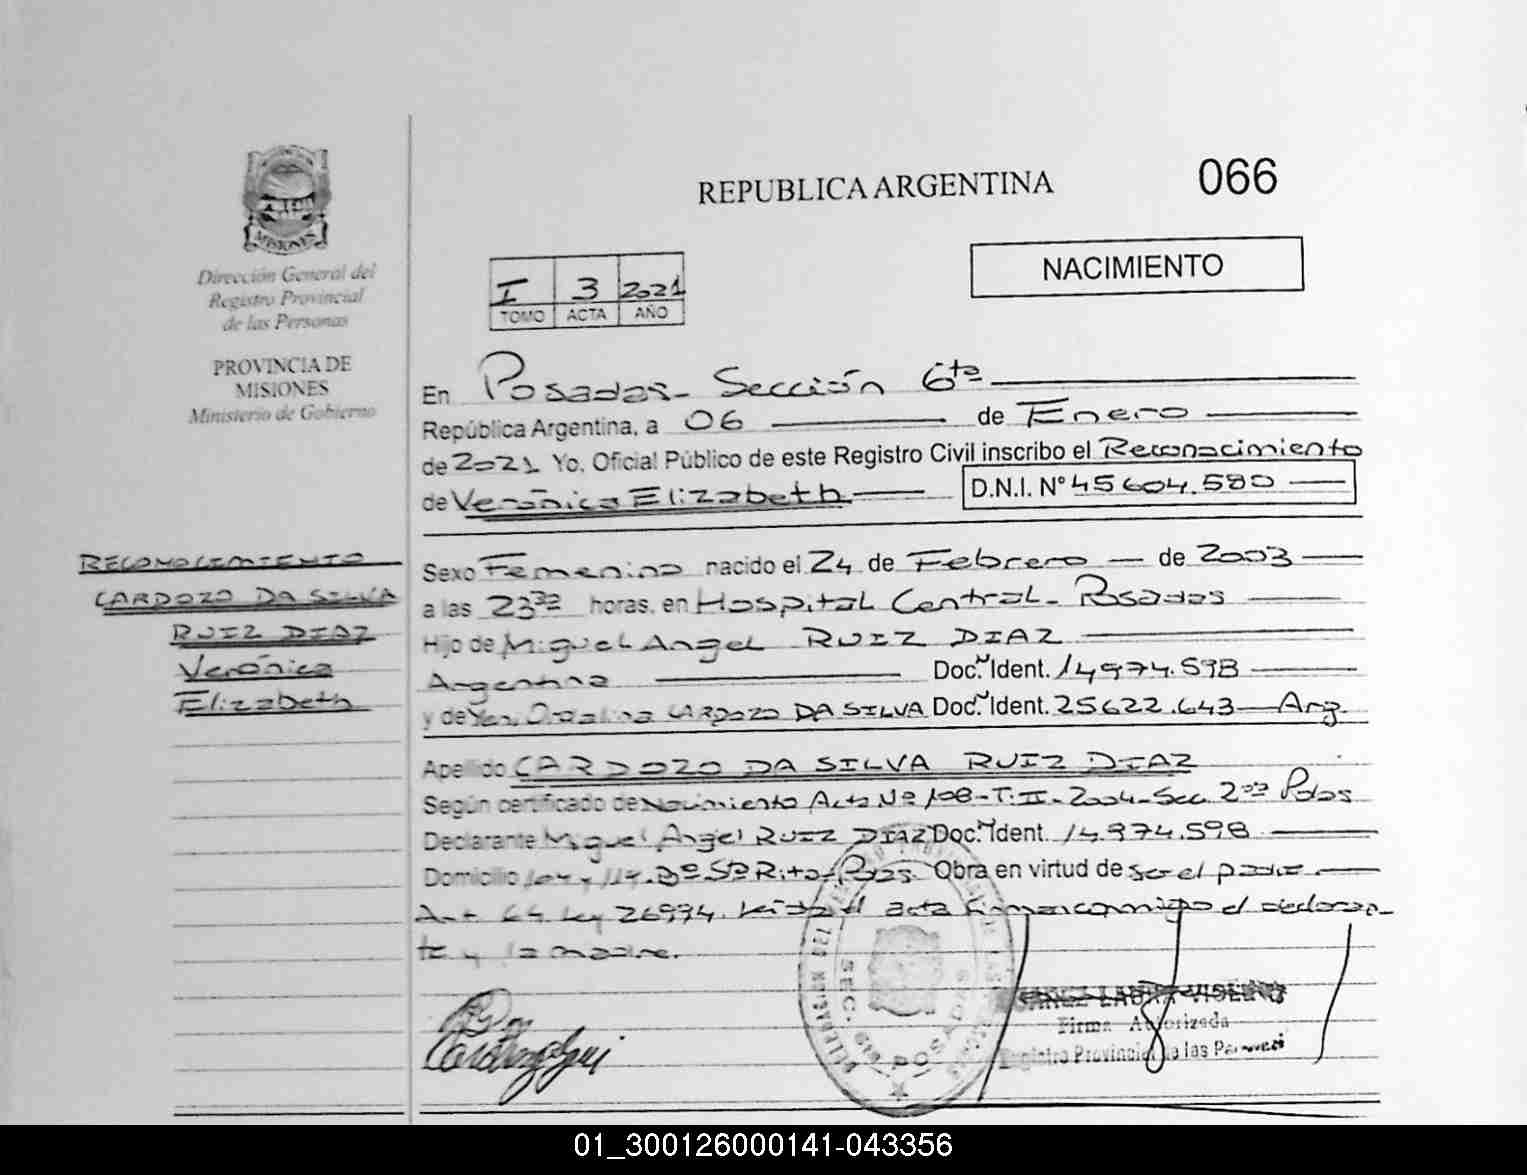 MISIONES
Dirección General del
Registro Provincial
de las Personas
PROVINCIA DE
MISIONES
Ministerio de Gobierno
REPUBLICA ARGENTINA
066
NACIMIENTO
I 3 2021
TOMO ACTA AÑO
En Posadas - Sección 6ta
República Argentina, a 06 de Enero
de 2021 Yo, Oficial Público de este Registro Civil inscribo el Reconocimiento
de Verónica Elizabeth D.N.I. Nº 45604.580
RECONOCIMIENTO
CARDOZO DA SILVA
RUIZ DIAZ
Verónica
Elizabeth
Sexo Femenino nacido el 24 de Febrero de 2003
a las horas, en Hospital Central - Posadas
Hijo de Miguel Angel RUIZ DIAZ
Argentina Doc. Ident. 14974.598
y de CARDOZO DA SILVA Doc. Ident. 25622.643 Arg.
Apellido CARDOZO DA SILVA RUIZ DIAZ
Según certificado de Nacimiento Acta Nº 108 - T. II - 2004 - Sec. 2da Pdas
Declarante Miguel Angel RUIZ DIAZ Doc. Ident. 14.974.598
Domicilio Bº Sta Rita - Pdas. Obra en virtud de ser el padre
Art. 64 Ley 26994. Leída el acta firman conmigo el declaran-
te y la madre.
SEC.
POSADAS
Firma Autorizada
Registro Provincial de las Personas
01_300126000141-043356